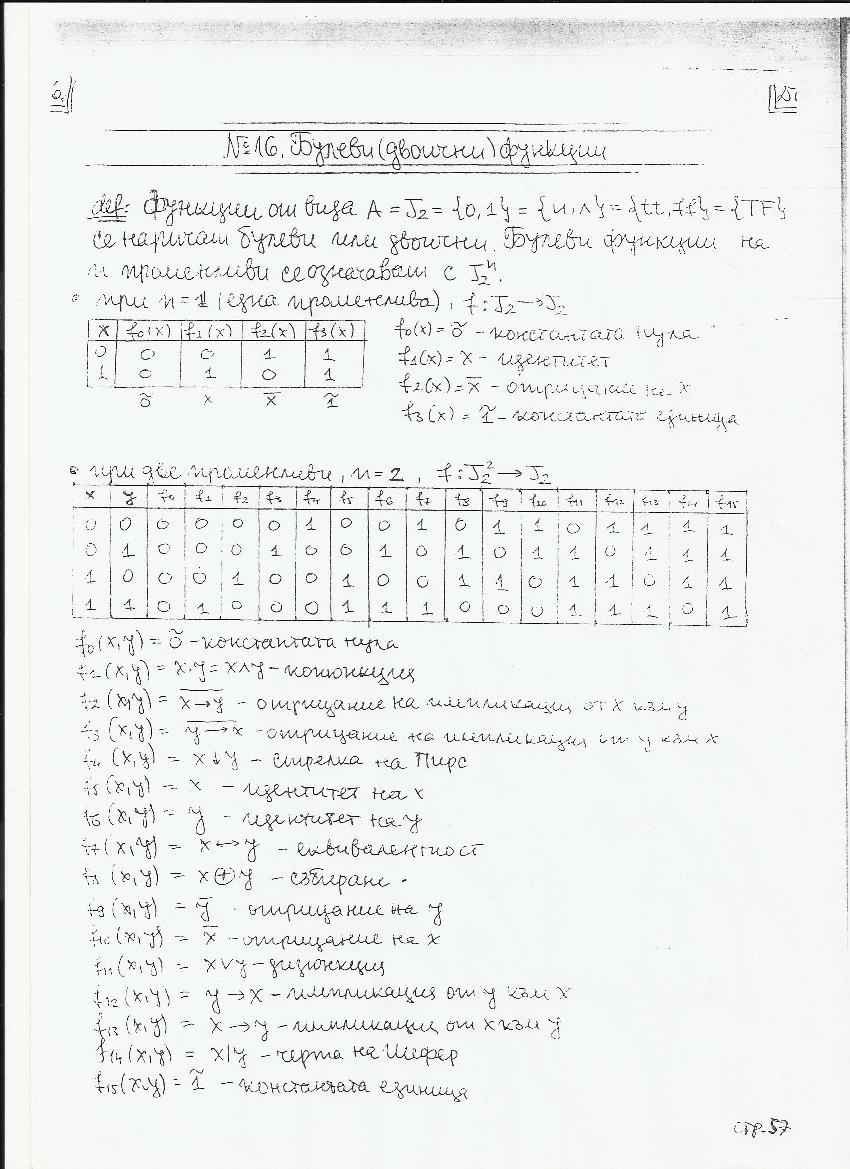 6.
15.
№16. Булеви (двоични) функции
def: Функции от вида A = J₂ = {0,1} = {и,л} = {tt,ff} = {TF}
се наричат булеви или двоични. Булеви функции на
n променливи се означават с J₂ⁿ.
• при n=1 (една променлива), f: J₂→J₂
x f₀(x) f₁(x) f₂(x) f₃(x)
0 0 0 1 1
1 0 1 0 1
õ x x̄ 1̃
f₀(x) = õ - константата нула
f₁(x) = x - идентитет
f₂(x) = x̄ - отрицание на x
f₃(x) = 1̃ - константата единица
• при две променливи, n=2, f: J₂² → J₂
x y f₀ f₁ f₂ f₃ f₄ f₅ f₆ f₇ f₈ f₉ f₁₀ f₁₁ f₁₂ f₁₃ f₁₄ f₁₅
0 0 0 0 0 0 1 0 0 1 0 1 1 0 1 1 1 1
0 1 0 0 0 1 0 0 1 0 1 0 1 1 0 1 1 1
1 0 0 0 1 0 0 1 0 0 1 1 0 1 1 0 1 1
1 1 0 1 0 0 0 1 1 1 0 0 0 1 1 1 0 1
f₀(x,y) = õ - константата нула
f₁(x,y) = x.y = x∧y - конюнкция
f₂(x,y) = \overline{x→y} - отрицание на импликация от x към y
f₃(x,y) = \overline{y→x} - отрицание на импликация от y към x
f₄(x,y) = x↓y - стрелка на Пирс
f₅(x,y) = x - идентитет на x
f₆(x,y) = y - идентитет на y
f₇(x,y) = x↔y - еквивалентност
f₈(x,y) = x⊕y - събиране
f₉(x,y) = ȳ - отрицание на y
f₁₀(x,y) = x̄ - отрицание на x
f₁₁(x,y) = x∨y - дизюнкция
f₁₂(x,y) = y→x - импликация от y към x
f₁₃(x,y) = x→y - импликация от x към y
f₁₄(x,y) = x|y - черта на Шефер
f₁₅(x,y) = 1̃ - константата единица
стр.57